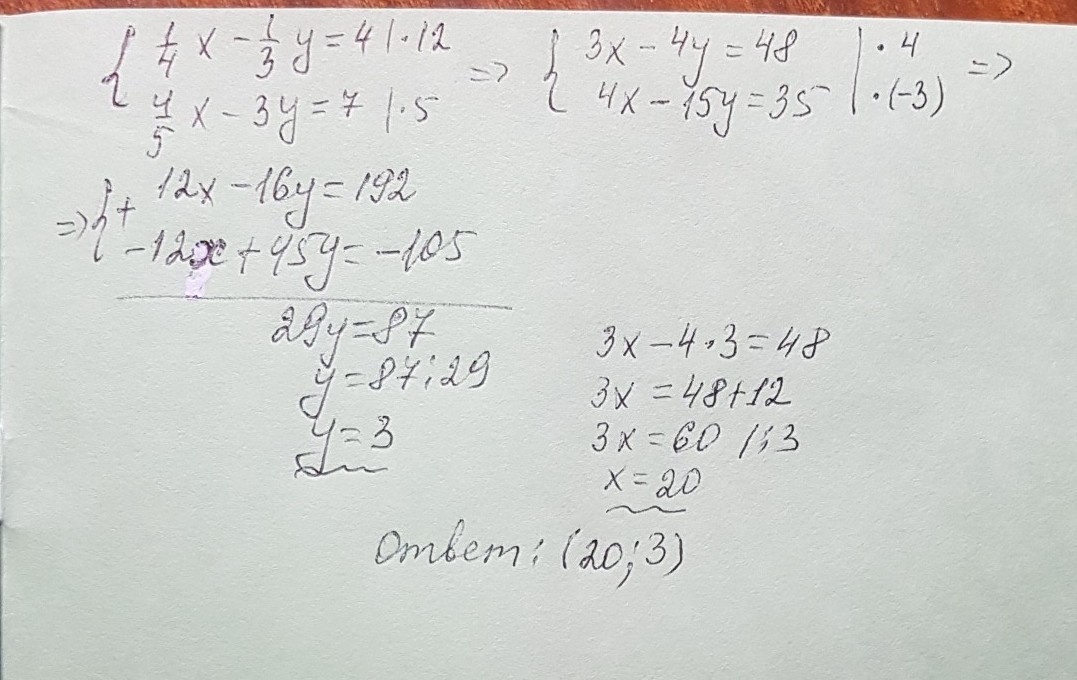 { 1/4 x - 1/3 y = 4 | · 12 => { 3x - 4y = 48 | · 4 =>
4/5 x - 3y = 7 | · 5 4x - 15y = 35 | · (-3)
=> { + 12x - 16y = 192
-12x + 45y = -105
29y = 87
y = 87 : 29
y = 3
3x - 4 · 3 = 48
3x = 48 + 12
3x = 60 | : 3
x = 20
Ответ: (20; 3)